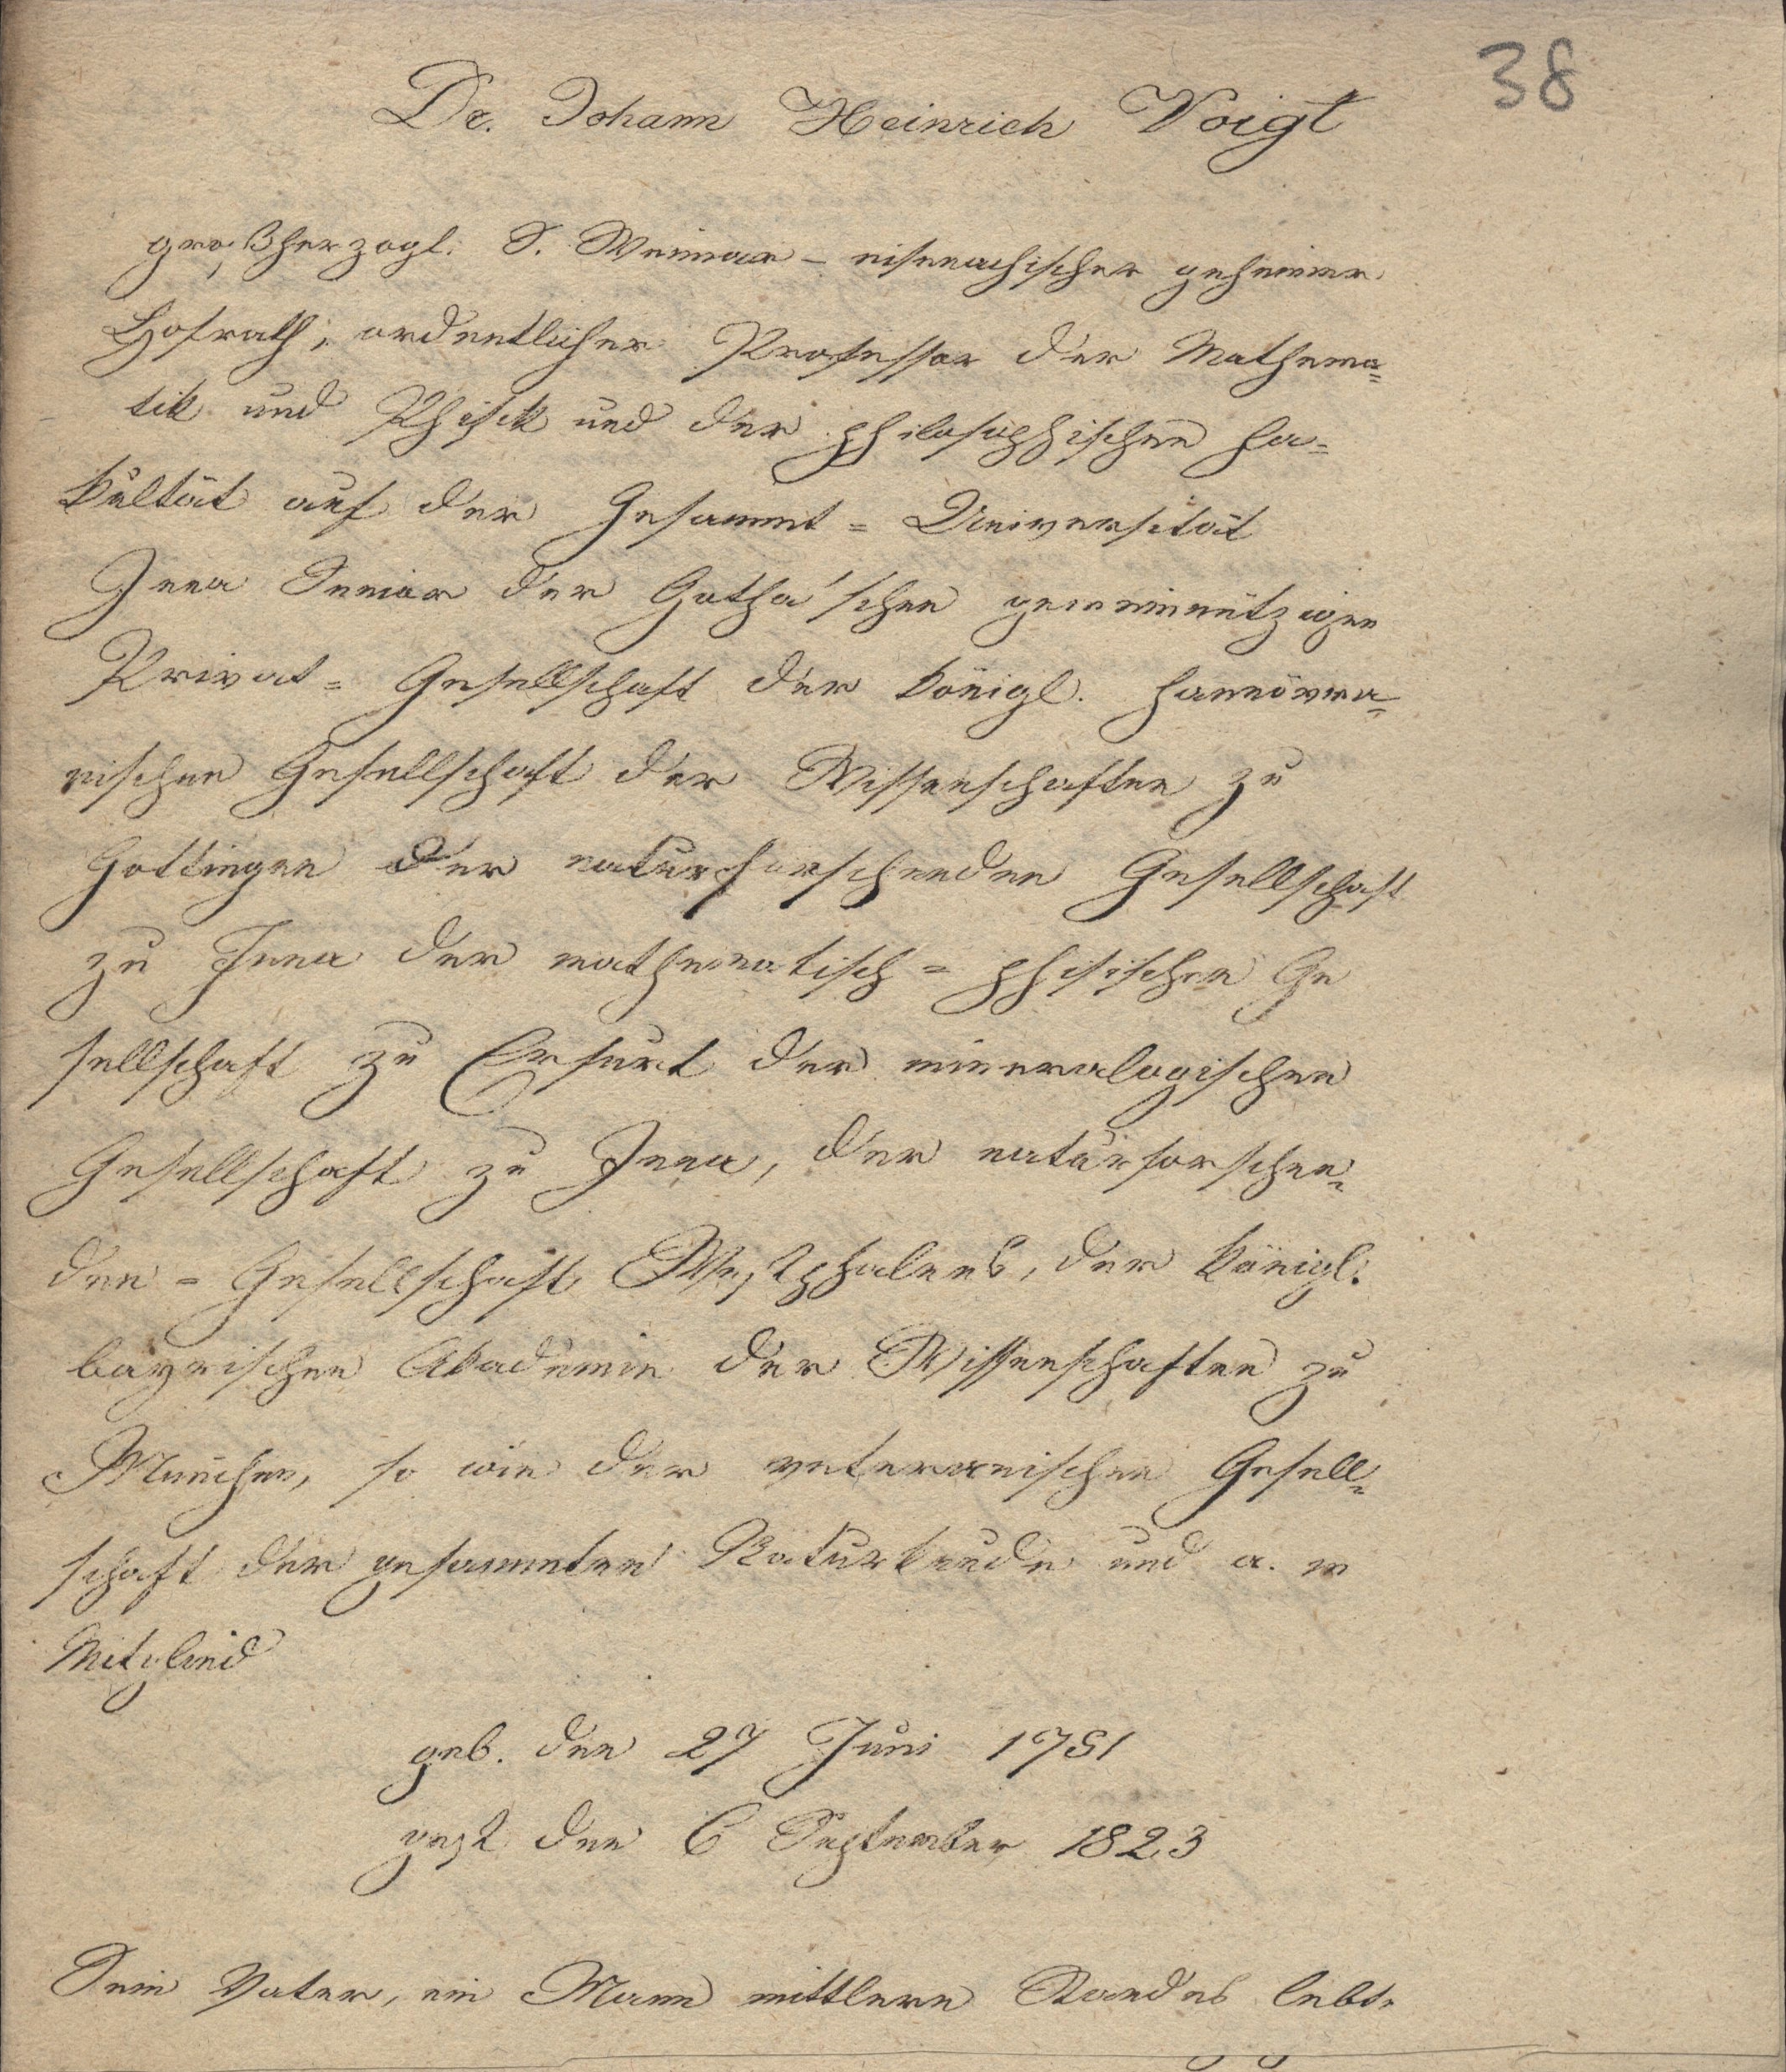 38
Dr. Johann Heinrich Voigt
großherzogl. S. Weimar - eisenachischer geheimer
Hofrath, ordentlicher Professor der Mathema=
tik und Phisik und der philosophischen Fa=
kultät auf der Gesammt = Universität
Jena Senior der Gotha'schen gemeinnützigen
Privat = Gesellschaft der königl. hannövera=
nischen Gesellschaft der Wissenschaften zu
Gottingen der naturforschenden Gesellschaft
zu Jena der mathematisch = phisischen Ge
sellschaft zu Erfurt der mineralogischen
Gesellschaft zu Jena, der naturforschen=
den = Gesellschaft Westphalens, der königl.
bayrischen Akademie der Wissenschaften zu
München, so wie der veteranischen Gesell=
schaft der gesammten Naturkunde und a. m
Mitglied
geb. den 27 Juni 1751
gest den 6 September 1823
Sein Vater, ein Mann mittlern Standes lebte